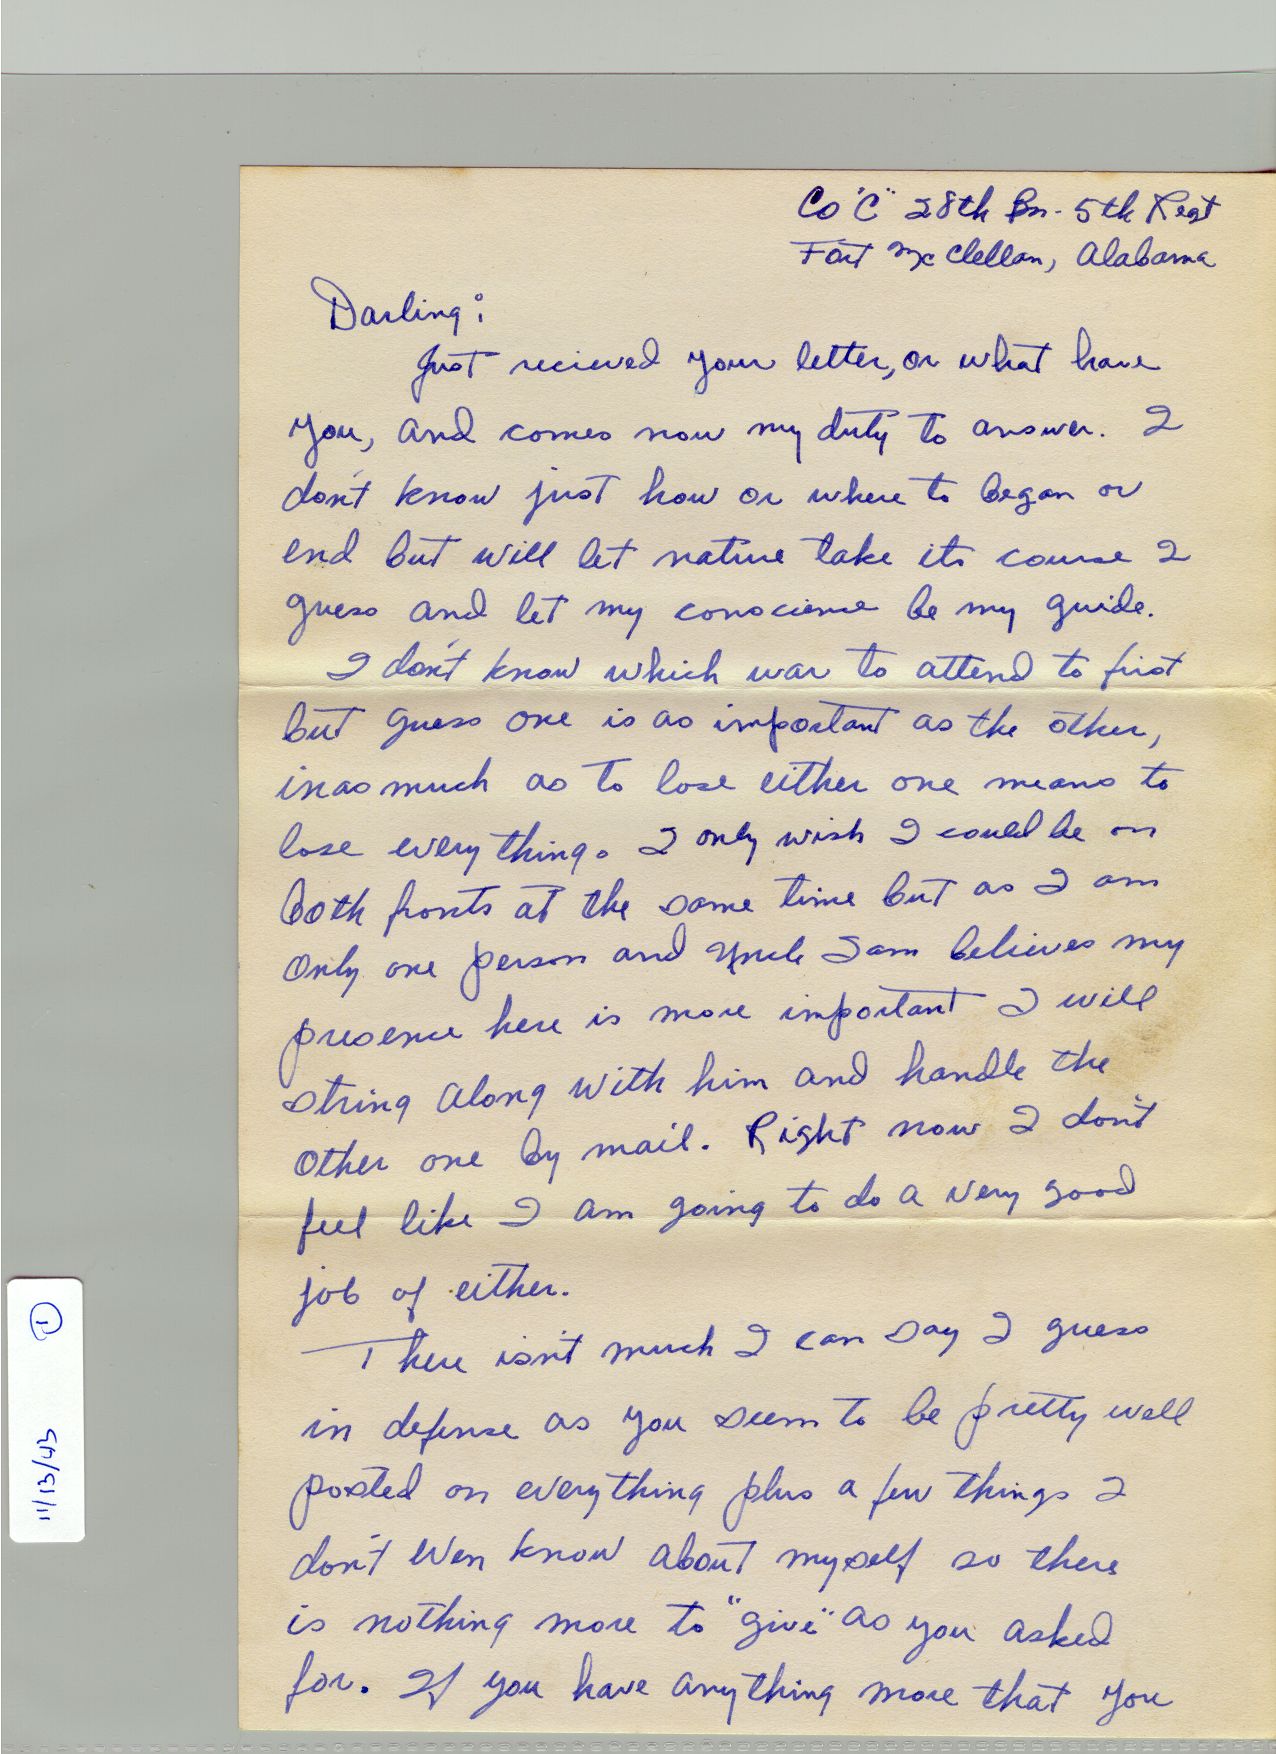 Co "C" 28th Bn - 5th Regt
Fort Mc Clellan, Alabama
Darling:
Just recieved your letter, or what have
you, and comes now my duty to answer. I
don't know just how or where to began or
end but will let nature take its course I
guess and let my conscience be my guide.
I don't know which war to attend to first
but guess one is as important as the other,
in as much as to lose either one means to
lose everything. I only wish I could be on
both fronts at the same time but as I am
only one person and Uncle Sam believes my
presence here is more important I will
string along with him and handle the
other one by mail. Right now I don't
feel like I am going to do a very good
job of either.
There isn't much I can say I guess
in defense as you seem to be pretty well
posted on everything plus a few things I
don't even know about myself so there
is nothing more to "give" as you asked
for. If you have anything more that you
11/13/43 1